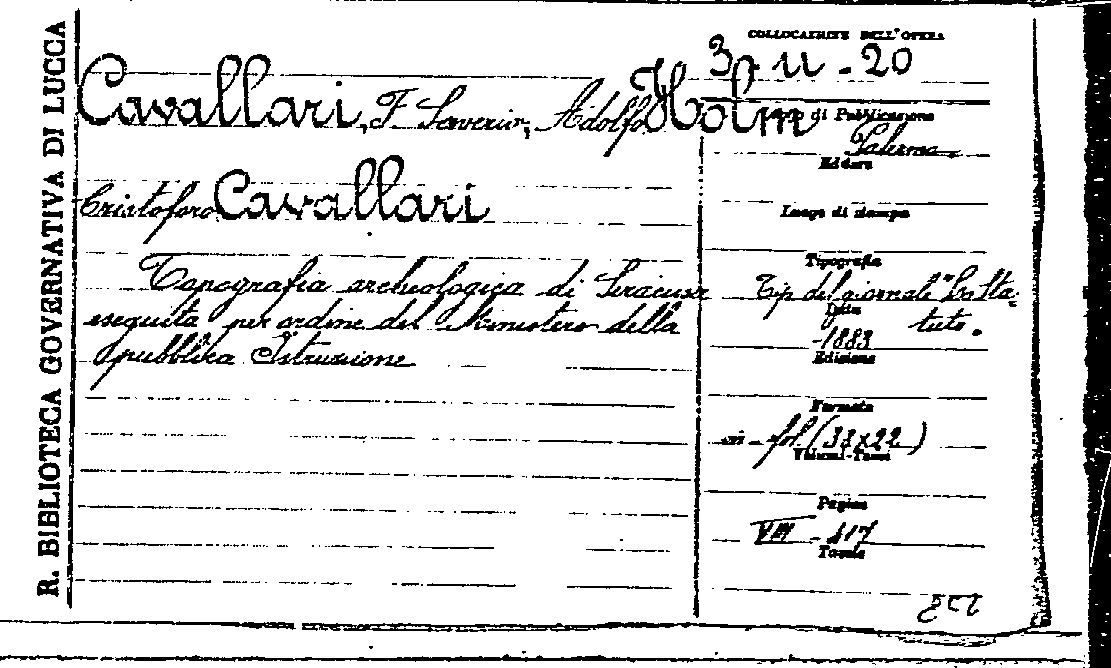 R. BIBLIOTECA GOVERNATIVA DI LUCCA
COLLOCAZIONE DELL'OPERA
30 - 20
Cavallari, F. Saverio, Adolfo Holm
di Pubblicazione
Palermo.
Editore
Cristoforo Cavallari
Luogo di stampa
Tipografia
Topografia archeologica di Siracusa
Tip. del giornale "Lo Sta-
tuto.
eseguita per ordine del Ministero della
Data
1883
pubblica Istruzione
Edizione
Formato
in - fol. (32x22)
Volumi-Tomi
Pagine
VIII - 417
Tavole